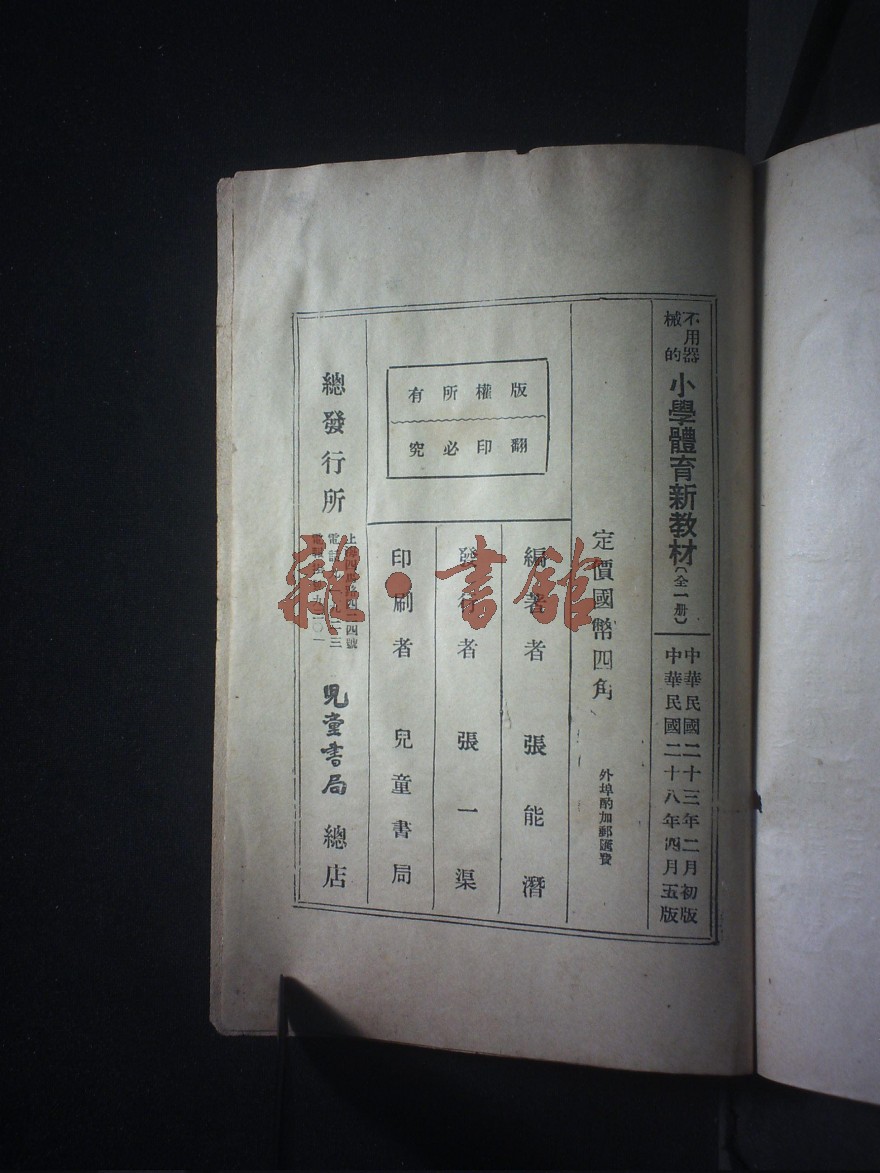 不用器械的
小學體育新教材(全一册)
中華民國二十三年二月初版
中華民國二十八年四月五版
定價國幣四角
外埠酌加郵匯費
版權所有
翻印必究
編著者 張能潛
發行者 張一渠
印刷者 兒童書局
總發行所
兒童書局 總店
雜·書館